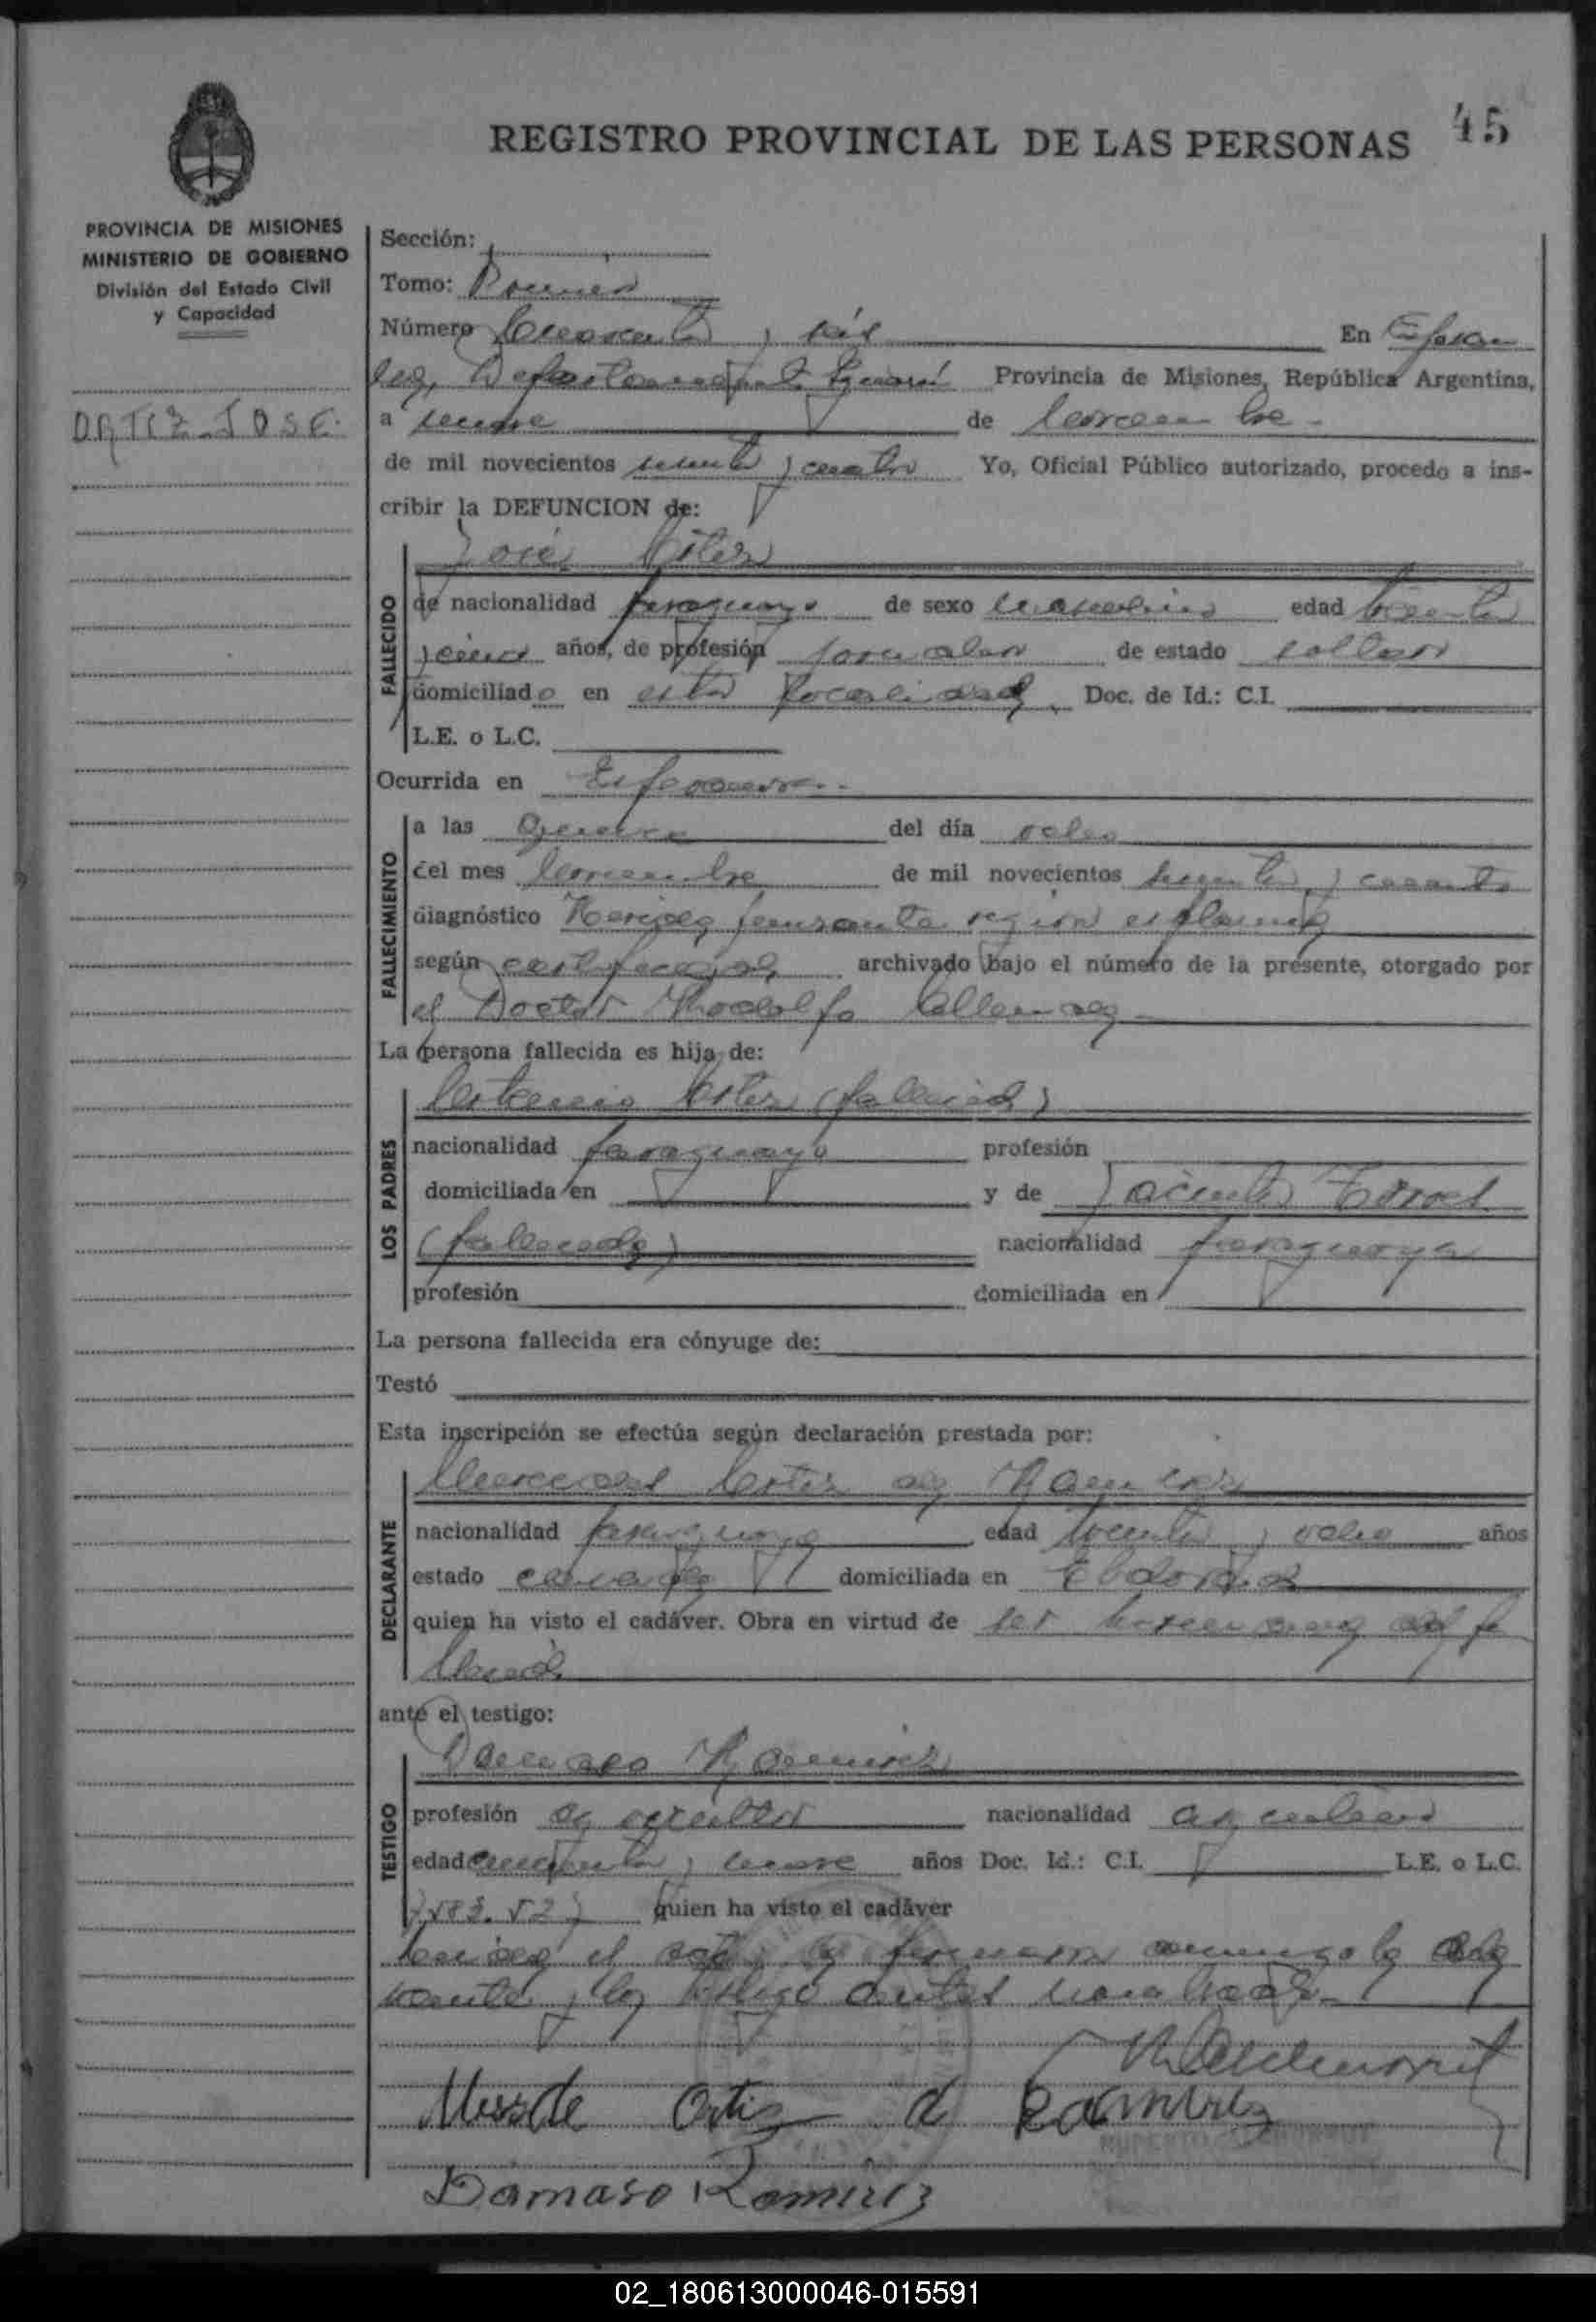 45
REGISTRO PROVINCIAL DE LAS PERSONAS
PROVINCIA DE MISIONES
MINISTERIO DE GOBIERNO
División del Estado Civil
y Capacidad
ORTIZ JOSE.
Sección:
Tomo: Primero
Número Cuarenta y seis En Esperan
za, Departamento Provincia de Misiones, República Argentina,
a nueve de
de mil novecientos sesenta y cuatro Yo, Oficial Público autorizado, procedo a ins-
cribir la DEFUNCION de:
José Ortiz
FALLECIDO
de nacionalidad paraguayo de sexo masculino edad treinta
y cinco años, de profesión jornalero de estado soltero
domiciliado en esta localidad. Doc. de Id.: C.I.
L.E. o L.C.
Ocurrida en Esperanza
FALLECIMIENTO
a las quince del día ocho
del mes de mil novecientos sesenta y cuatro
diagnóstico Herida punzante región
según certificado archivado bajo el número de la presente, otorgado por
el Doctor Rodolfo
La persona fallecida es hija de:
LOS PADRES
Ortiz (fallecido)
nacionalidad paraguayo profesión
domiciliada en y de Jacinta Torres
(fallecida) nacionalidad paraguaya
profesión domiciliada en
La persona fallecida era cónyuge de:
Testó
Esta inscripción se efectúa según declaración prestada por:
DECLARANTE
Mercedes Ortiz de Ramirez
nacionalidad paraguaya edad treinta y ocho años
estado casada domiciliada en Eldorado
quien ha visto el cadáver. Obra en virtud de ser hermana del fa
llecido.
ante el testigo:
TESTIGO
Damaso Ramirez
profesión agricultor nacionalidad argentino
edad y nueve años Doc. Id.: C.I. L.E. o L.C.
quien ha visto el cadáver
Leida el acta, la firman conmigo la decla
rante y el testigo antes nombrado.
Mersede Ortiz d Ramirez
Damaso Ramirez
02_180613000046-015591